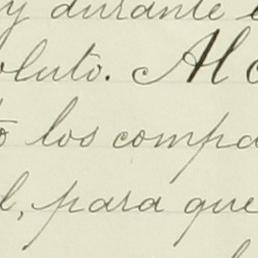 y durante
oluto. Al
los compa
l, para que